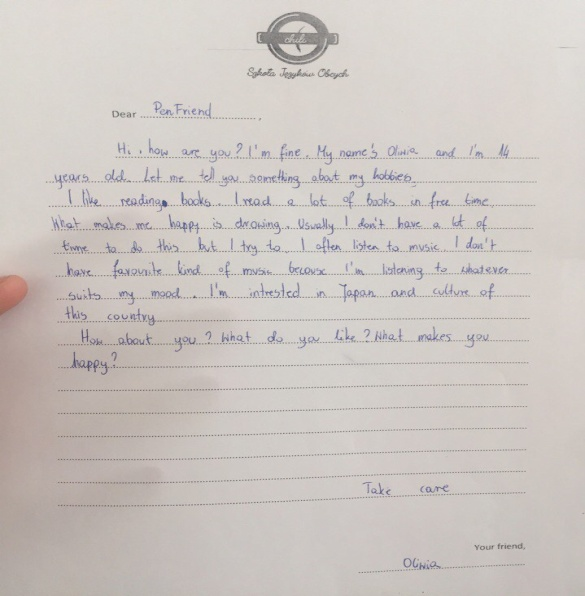 chili
Szkoła Języków Obcych
Dear Pen Friend,
Hi, how are you? I'm fine. My name's Oliwia and I'm 14
years old. Let me tell you something about my hobbies.
I like reading books. I read a lot of books in free time.
What makes me happy is drowing. Usually I don't have a lot of
time to do this but I try to. I often listen to music. I don't
have favourite kind of music becouse I'm listening to whatever
suits my mood. I'm intrested in Japan and culture of
this country
How about you? What do you like? What makes you
happy?
Take care
Your friend,
Oliwia